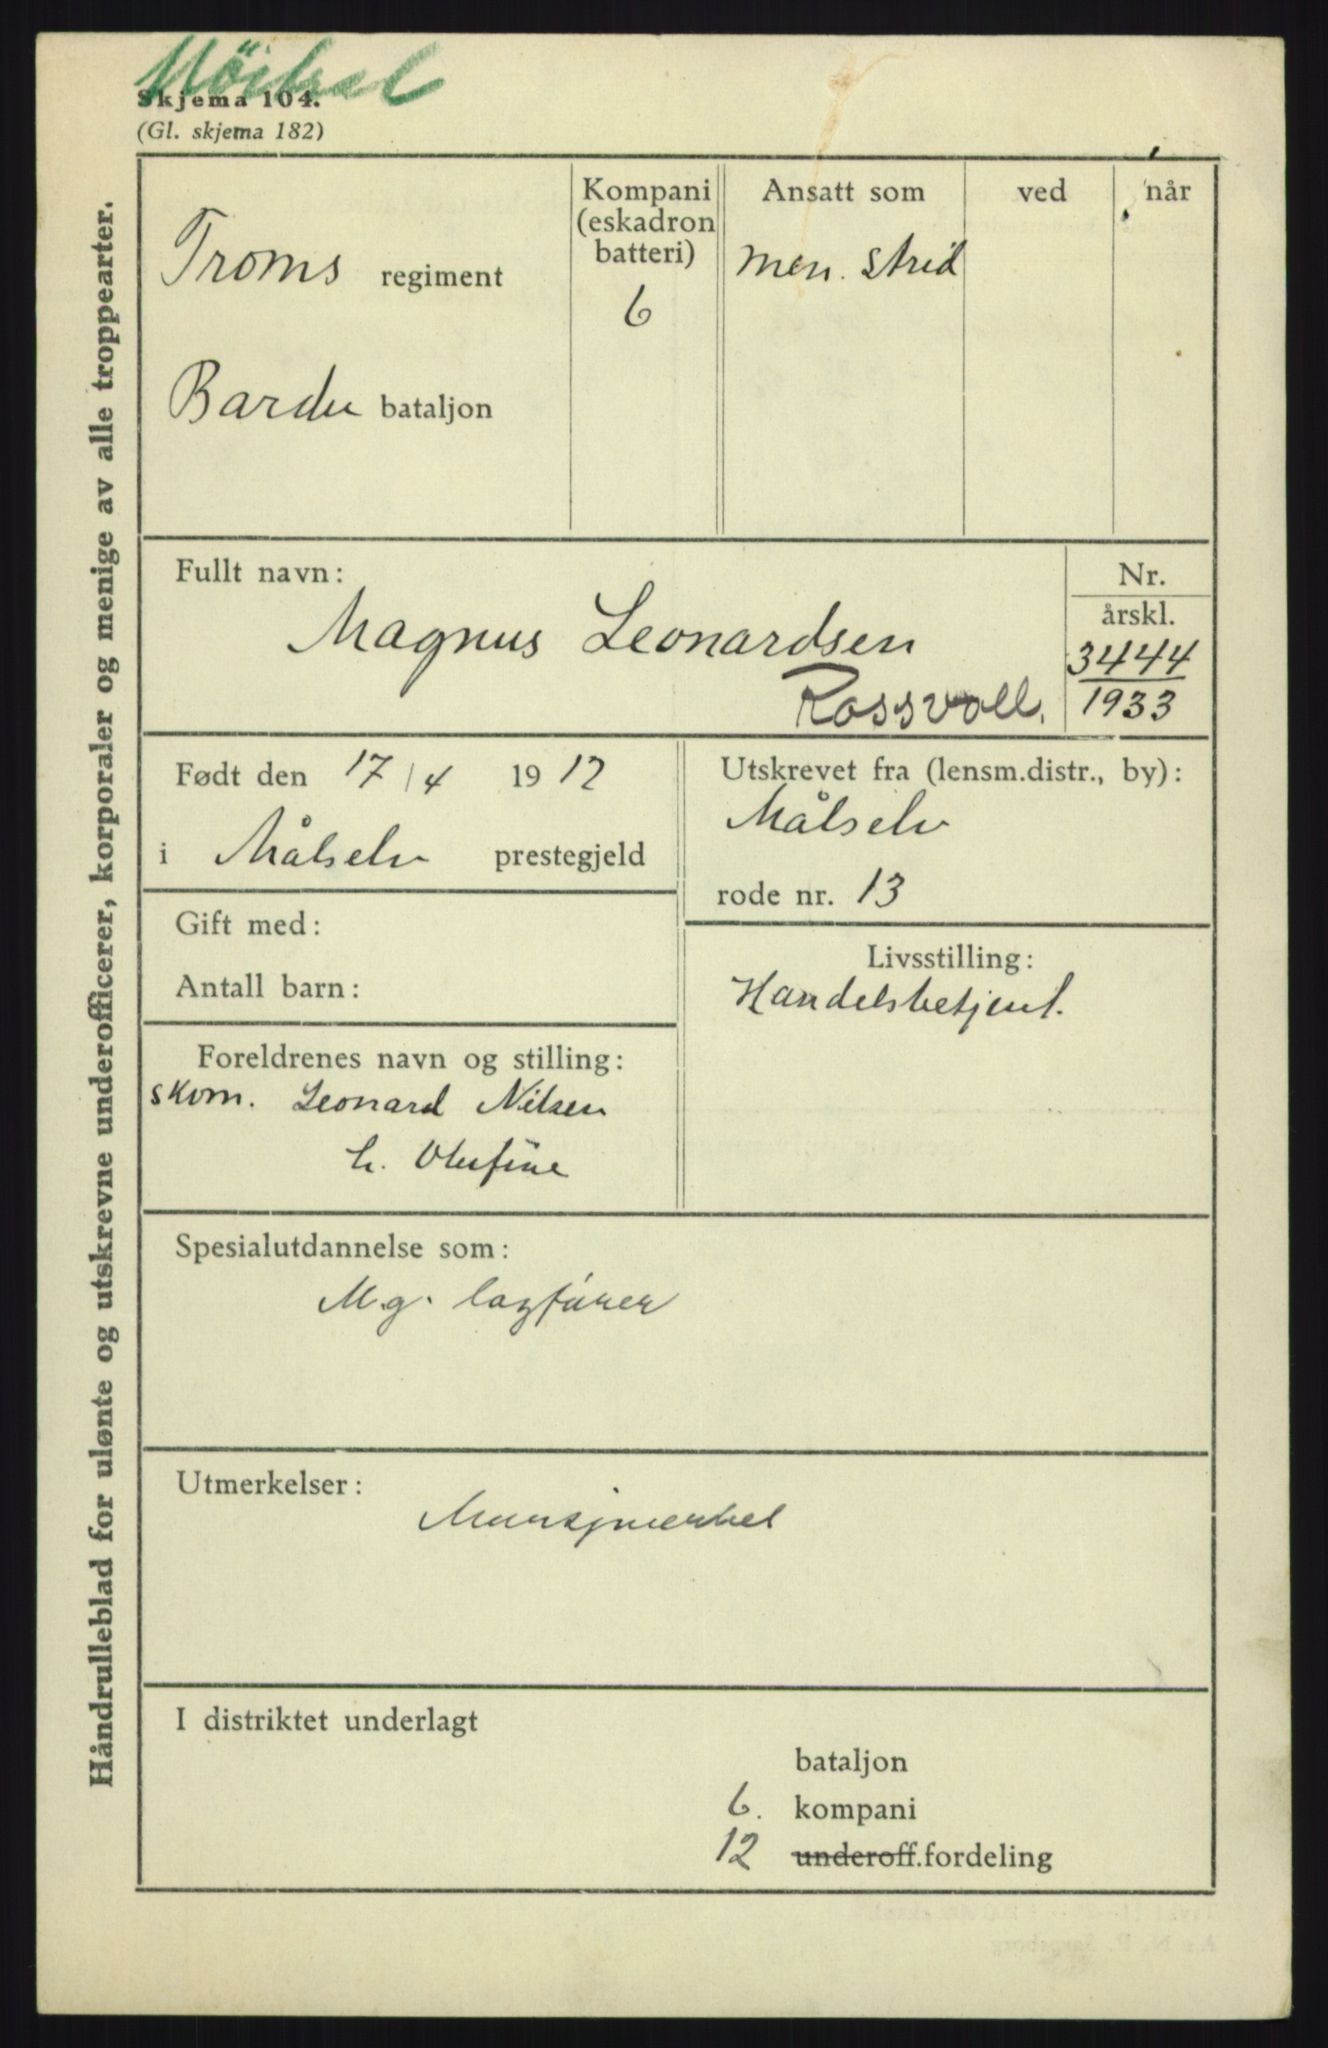 Skjema 104.
(Gl. skjema 182)
Håndrulleblad for ulønte og utskrevne underofficerer, korporaler og menige av alle troppearter.
Troms regiment
Kompani
(eskadron
batteri)
6
Ansatt som
men. strid
ved
når
Bardu bataljon
Fullt navn:
Magnus Leonardsen
Rossvoll.
Nr.
årskl.
3444
1933
Født den 17/4 1912
i Målselv prestegjeld
Utskrevet fra (lensm.distr., by):
Målselv
rode nr. 13
Gift med:
Antall barn:
Livsstilling:
Handelsbetjent.
Foreldrenes navn og stilling:
skom. Leonard Nilsen
h. Olufine
Spesialutdannelse som:
M.g. lagfører
Utmerkelser:
Marsjmerket
I distriktet underlagt
bataljon
6. kompani
12 underoff.fordeling